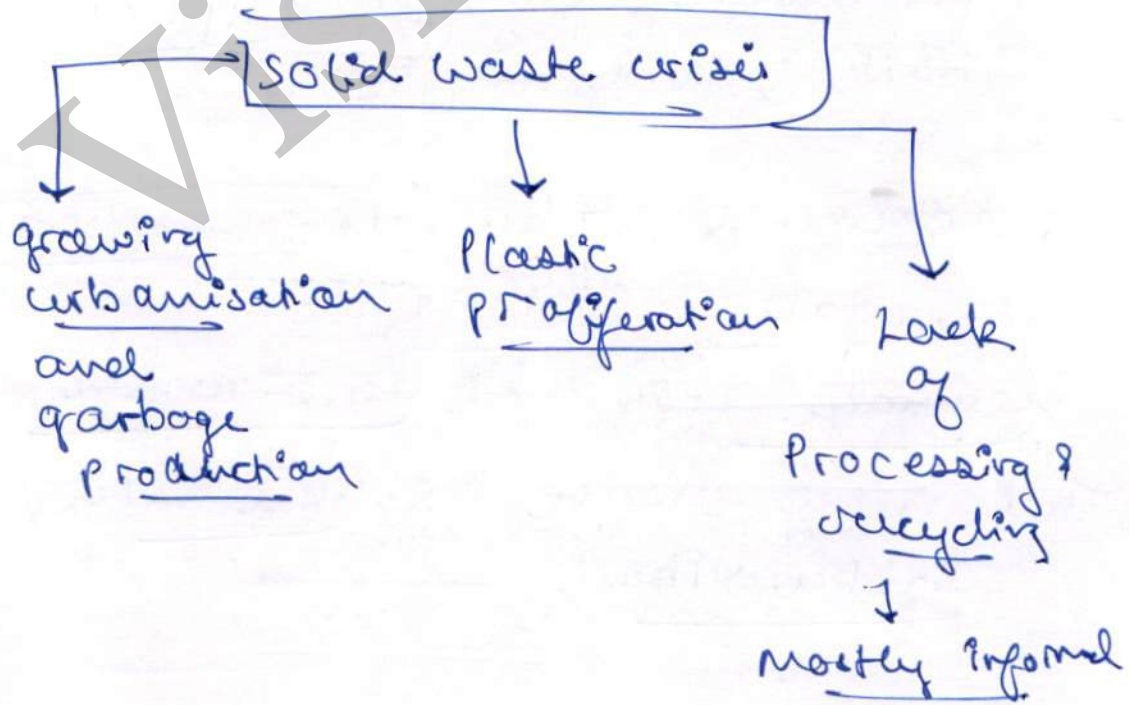 Visi
Solid waste crisis
growing
urbanisation
and
garbage
production
Plastic
proliferation
Lack
of
Processing &
recycling
Mostly informal